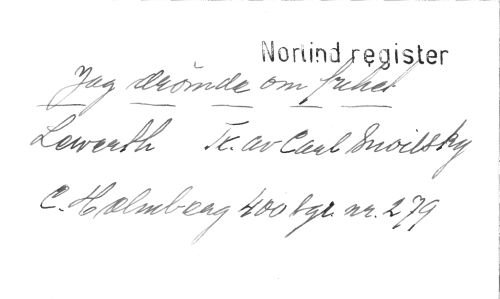 Norlind register
Jag drömde om frihet
Lewerth Tr. av Carl Snoilsky
C. Holmberg 400 sgr. nr. 279